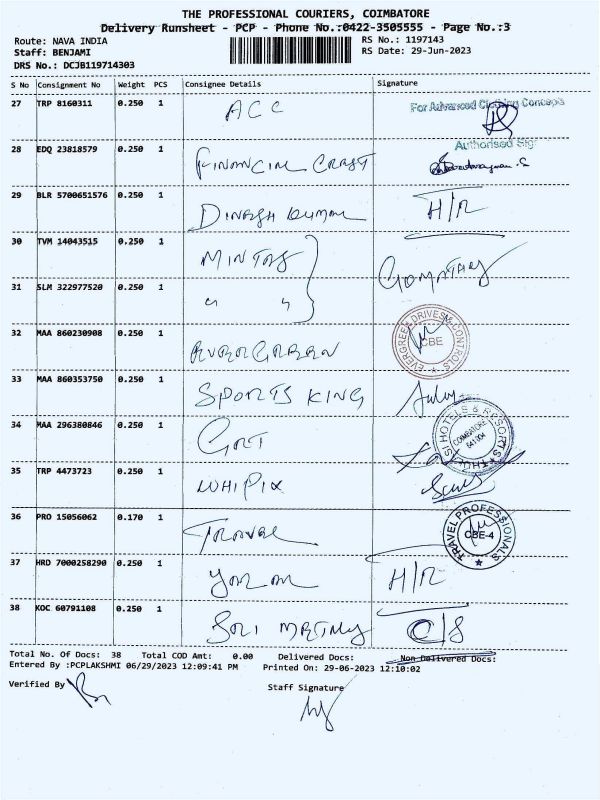 THE PROFESSIONAL COURIERS, COIMBATORE
Delivery Runsheet - PCP - Phone No.:0422-3505555 - Page No.:3
Route: NAVA INDIA
RS No.: 1197143
Staff: BENJAMI
RS Date: 29-Jun-2023
DRS No.: DCJB119714303
S No Consignment No Weight PCS Consignee Details Signature
27 TRP 8160311 0.250 1 ACC For Advanced Concepts
Authorised
28 EDQ 23818579 0.250 1 FINANCIAL CRAFT
29 BLR 5700651576 0.250 1 DINESH KUMAR H/R
30 TVM 14043515 0.250 1 MINTAS GOMATHY
31 SLM 322977520 0.250 1 " "
32 MAA 860230908 0.250 1 EVERGREEN EVERGREEN DRIVES & CONTROLS CBE
33 MAA 860353750 0.250 1 SPORTS KING
34 MAA 296380846 0.250 1 GRT HOTELS & RESORTS COIMBATORE 641 004
35 TRP 4473723 0.250 1 WHIPIX
36 PRO 15056062 0.170 1 TRAVEL TRAVEL PROFESSIONALS CBE-4
37 HRD 7000258290 0.250 1 H/R
38 KOC 60791108 0.250 1 SRI O/S
Total No. Of Docs: 38 Total COD Amt: 0.00 Delivered Docs: Non Delivered Docs:
Entered By :PCPLAKSHMI 06/29/2023 12:09:41 PM Printed On: 29-06-2023 12:10:02
Verified By
Staff Signature